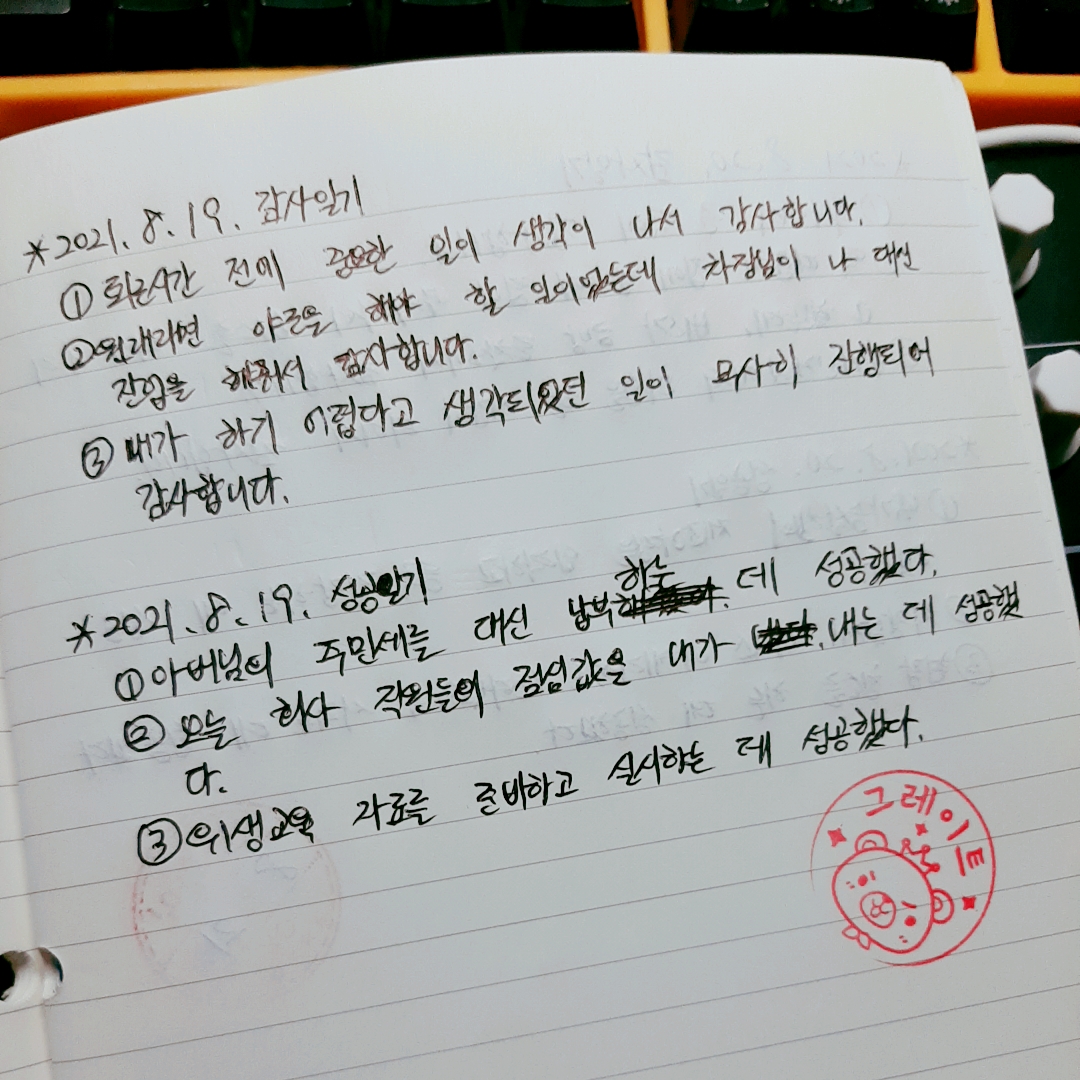 *2021.8.19. 감사일기
① 퇴근시간 전에 중요한 일이 생각이 나서 감사합니다.
② 원래라면 야근을 해야 할 일이었는데 차장님이 나 대신
잔업을 해줘서 감사합니다.
③ 내가 하기 어렵다고 생각되었던 일이 무사히 진행되어
감사합니다.
*2021.8.19. 성공일기
① 아버님의 주민세를 대신 납부하는 데 성공했다.
② 오늘 회사 직원들의 점심값을 내가 내는 데 성공했
다.
③ 위생교육 자료를 준비하고 실시하는 데 성공했다.
그레이트